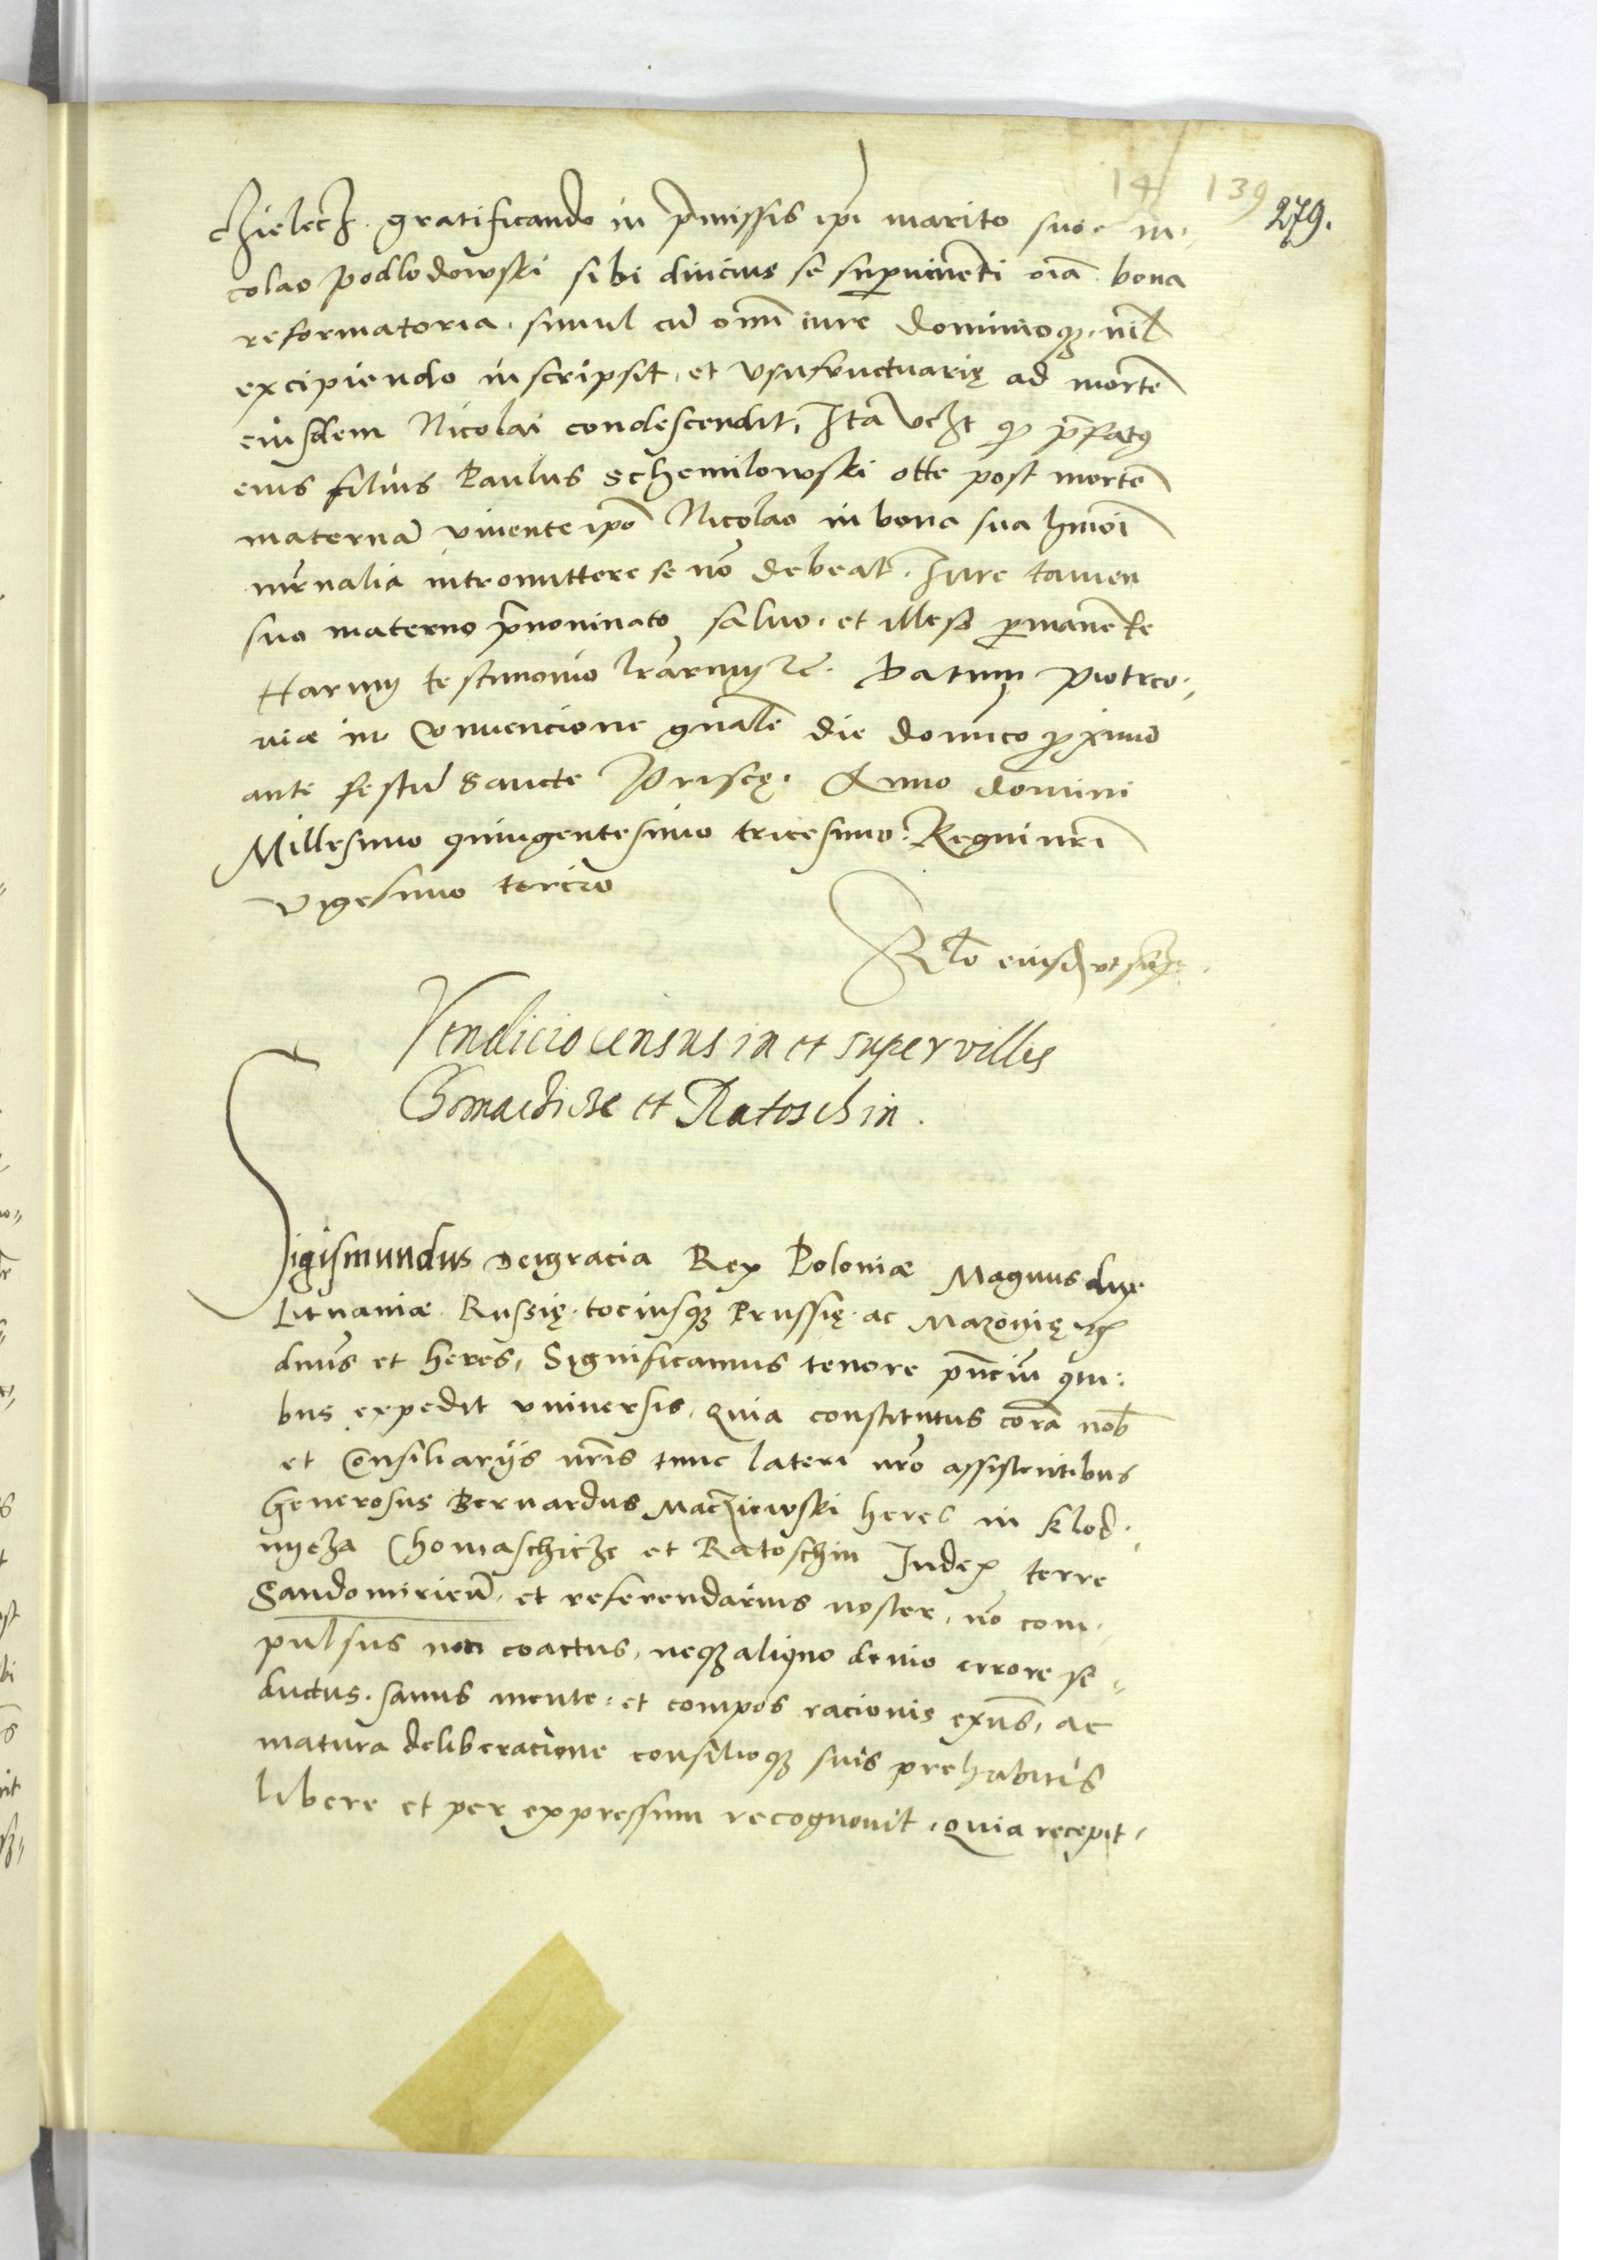 14 139 279.
chielecz. gratificando in p̄missis ip̄i marito suo ni,
colao podlodowski sibi diucius se sup̱uiuen̄ti oīa bona
reformatoria. simul cū om̄i iure dominioqꝫ. nil̄
excipiendo inscripsit. et vsufructuarię ad mortē
eiusdem Nicolai condescendit, Ita vt p̄fatꝰ
eius filius Paulus Schemilowski post mortē
maternā viuente ip̄o Nicolao in bona sua hm̄oi
mr̄nalia intromittere se nō debeat. Iure tamen
suo materno p̄nominato saluo. et illeso ꝑmanēte
Harum testimonio lr̄arum ꝛc̄. Datum piotrco,,
uiæ in Conuencione gn̄ali die dominico ꝓximo
ante festū Sancte Priscę. Anno domini
Millesimo quingentesimo tricesimo. Regni nr̄i
vigesimo tercio
Rl̄o eiusd ut supra.
Vendicio census in et super villis
Chomaschicze et Ratoschin.
Sigismundus Dei gracia Rex Poloniæ Magnus dux
Lituaniæ Russię. tociusqꝫ Prussię. ac Mazouię ꝛc̄
dn̄us et heres, Significamus tenore pn̄ciū qui:
bus expedit vniuersis, quia constitutus corā nob̄
et Consiliarijs nr̄is tunc lateri nr̄o assistentibus
Generosus Bernardus Macziewski heres in klod,
nycza Chomaschicze et Ratoschin Iudex terre
Sandomirien̄. et referendarius noster, nō com,
pulsus non coactus, neqꝫ aliquo deuio errore se,,
ductus. sanus mente. et compos racionis exn̄s, ac
matura deliberacione consilioqꝫ suis prehabitis
libere et per expressum recognouit, quia recepit,